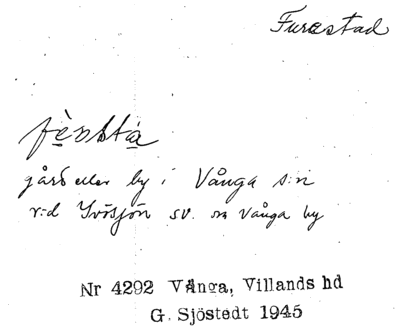 Furestad
fèɒsta
gård eller by i Vånga s:n
vid Ivösjön sv. om Vånga by
Nr 4292 Vånga, Villands hd
G. Sjöstedt 1945